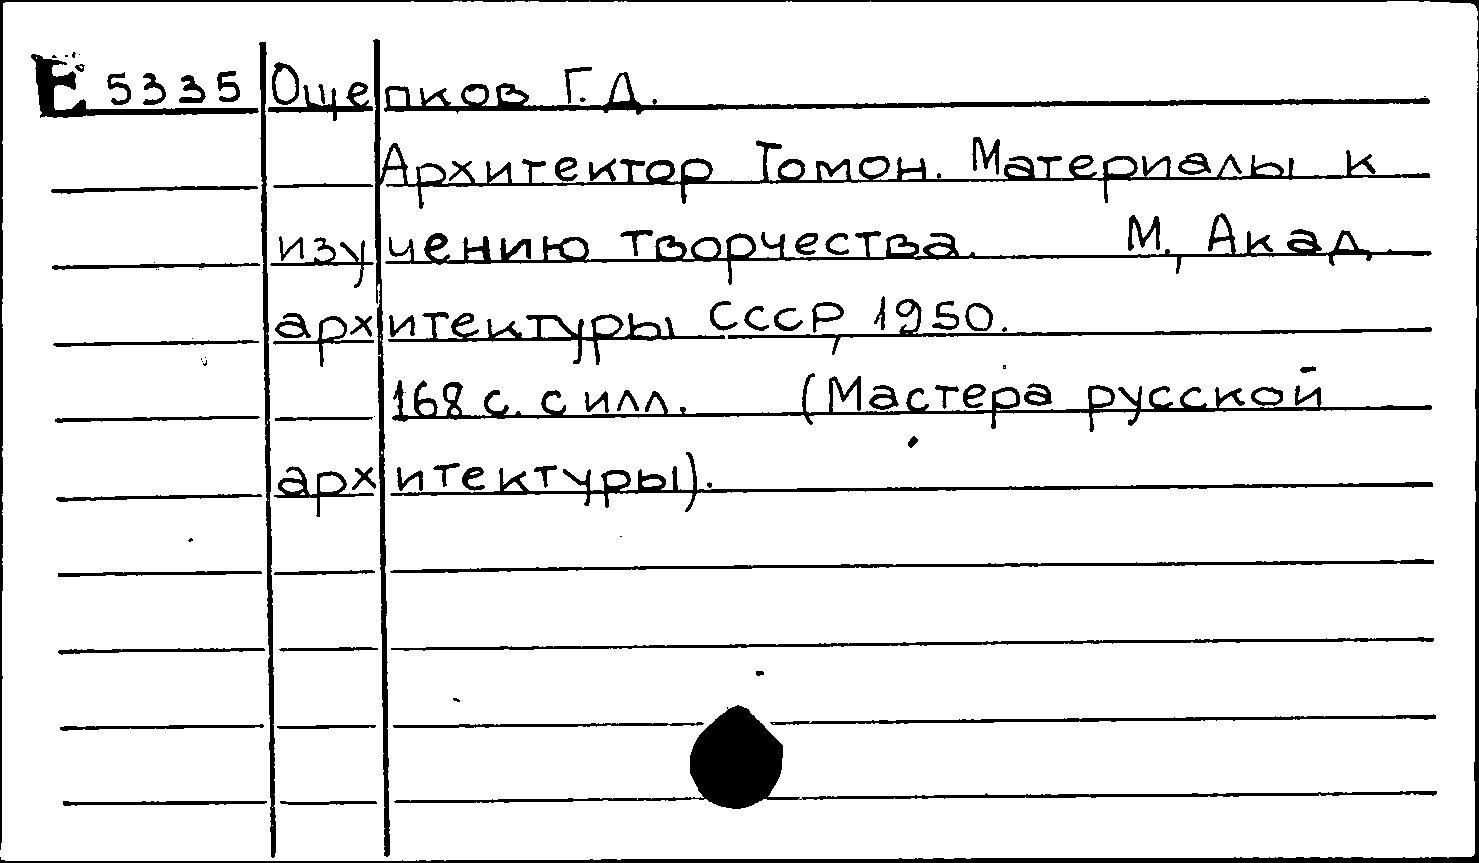 Е 5335 Ощепков Г.Д.
Архитектор Томон. Материалы к
изучению творчества. М., Акад.
архитектуры СССР, 1950.
168 с. с илл. (Мастера русской
архитектуры).